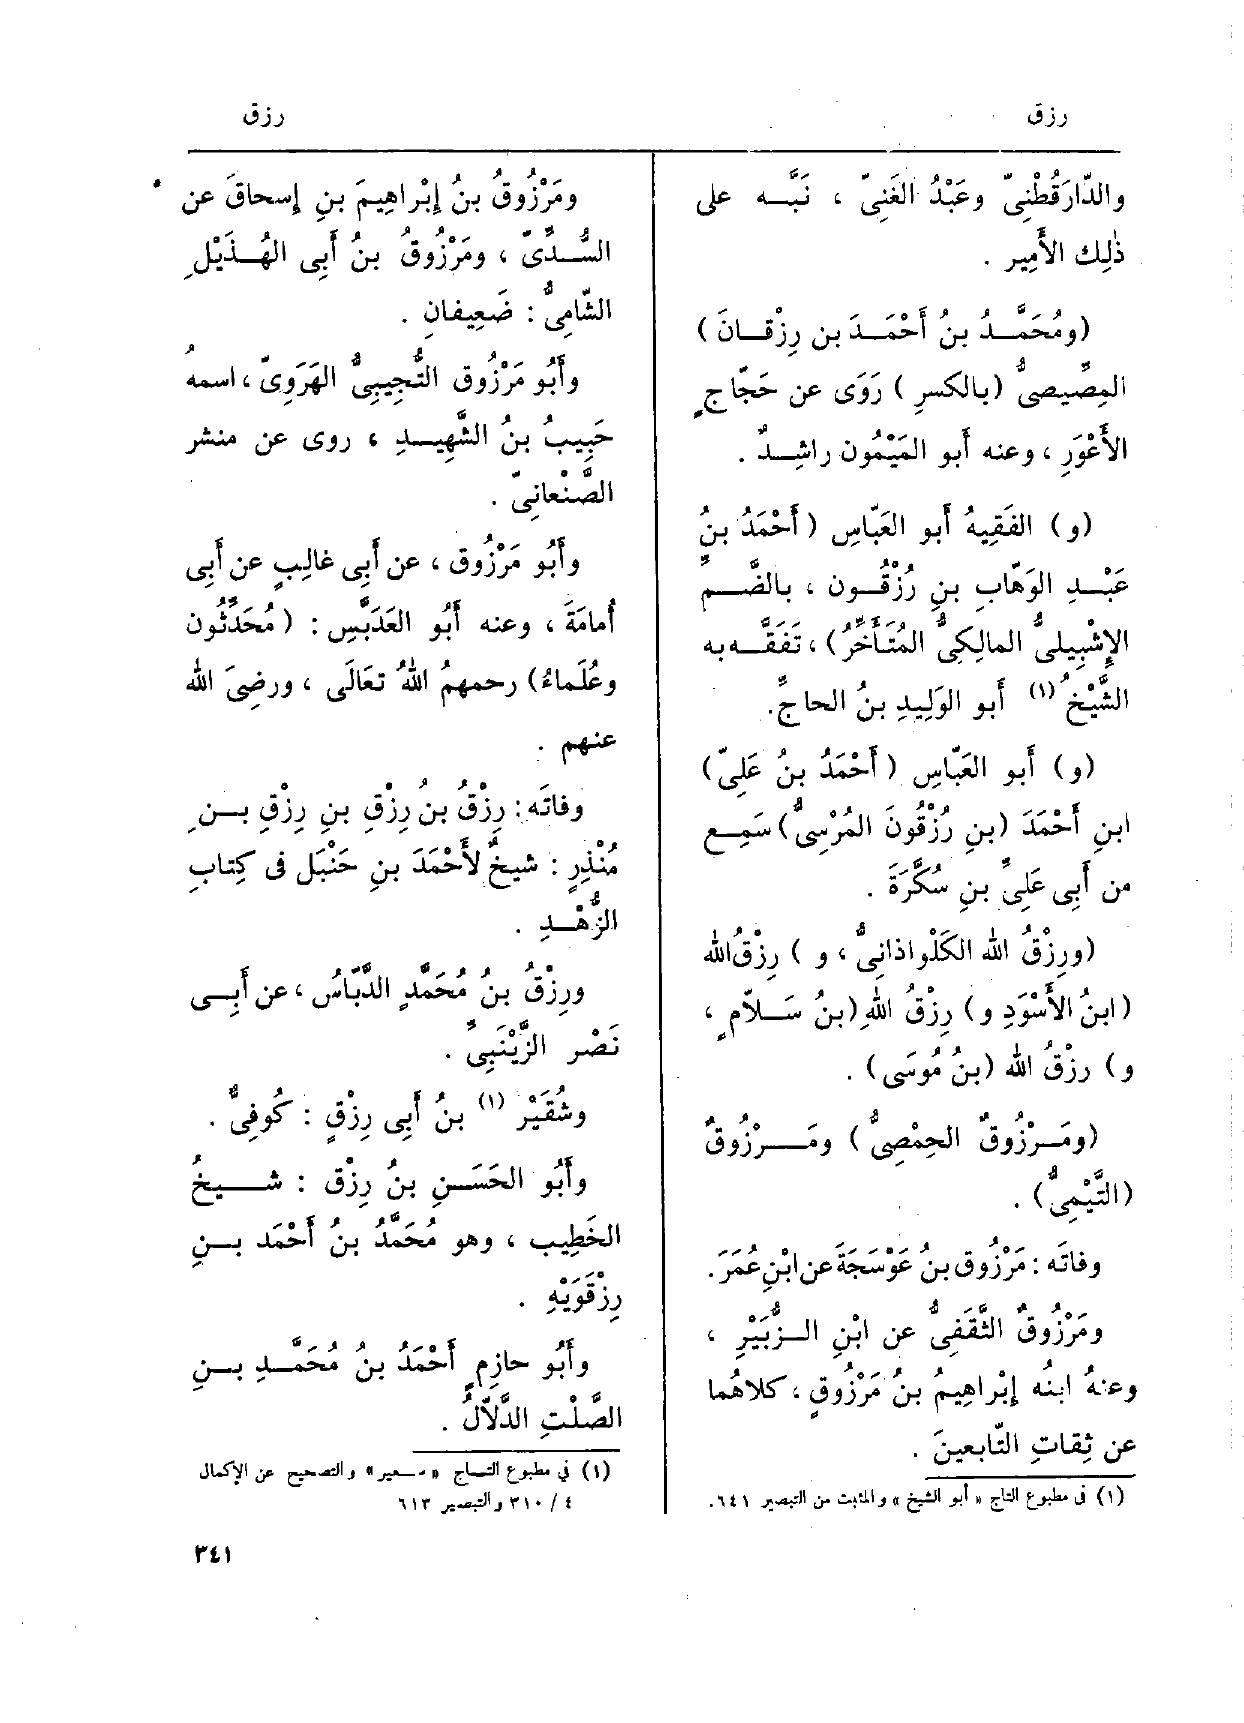 رزق
رزق
والدّارَقُطْنِىّ وعَبْدُ الغَنِىّ ، نَبَّــه على
ذٰلِك الأَمِير .
(ومُحَمَّــدُ بنُ أَحْمَــدَ بن رِزْقــانَ)
المِصِّيصىُّ (بالكسرِ) رَوَى عن حَجّاجٍ
الأَعْوَرِ ، وعنه أبو المَيْمُون راشِــدٌ .
(و) الفَقِيهُ أبو العَبّاسِ (أَحْمَدُ بنُ
عَبْــدِ الوَهّابِ بنِ رُزْقُــون ، بالضَّــمِّ
الإِشْبِيلىُّ المالِكِىُّ المُتَأَخِّرُ) ، تَفَقَّــه به
الشَّيْخُ (١) أَبو الوَلِيدِ بنُ الحاجِّ.
(و) أَبو العَبّاسِ (أَحْمَدُ بنُ عَلِىّ)
ابنِ أَحْمَدَ (بنِ رُزْقُونَ المُرْسِىُّ) سَمِــع
من أَبِى عَلِىٍّ بنِ سُكَّرَةَ .
(ورِزْقُ الله الكَلْواذانِىُّ ، و) رِزْقُ الله
(ابنُ الأَسْوَدِ و) رِزْقُ اللهِ (بنُ سَــلاّمٍ ،
و) رِزْقُ الله (بنُ مُوسَى) .
(ومَــرْزُوقٌ الحِمْصِىُّ) ومَــرْزُوقٌ
(التَّيْمِىُّ) .
وفاتَه : مَرْزُوق بنُ عَوْسَجَةَ عن ابْنِ عُمَرَ.
ومَرْزُوقٌ الثَّقَفِىُّ عن ابْنِ الــزُّبَيْرِ ،
وعنهُ ابنُه إِبْراهِيمُ بنُ مَرْزُوقٍ ، كلاهُما
عن ثِقاتِ التّابعِينَ .
(١) فى مطبوع التاج « أبو الشيخ » والمثبت من التبصير ٦٤١.
ومَرْزُوقُ بنُ إِبْراهِيمَ بنِ إِسحاقَ عن
السُّــدِّىّ ، ومَرْزُوقُ بنُ أَبِى الهُــذَيْلِ
الشّامِىُّ : ضَعِيفانِ .
وأَبُو مَرْزُوق التُّجِيبِىُّ الهَرَوِىّ ، اسمهُ
حَبِيبُ بنُ الشَّهِيــدِ ، روى عن منشر
الصَّنْعانِىّ .
وأَبُو مَرْزُوق ، عن أَبِى غالِبٍ عن أَبِى
أُمامَةَ ، وعنه أَبُو العَدَبَّسِ : (مُحَدِّثُون
وعُلَماءُ) رحمهمُ اللهُ تعَالَى ، ورضِىَ الله
عنهم .
وفاتَه : رِزْقُ بنُ رِزْقِ بنِ رِزْقِ بــنِ
مُنْذِرٍ : شيخٌ لأَحْمَدَ بنِ حَنْبَل فى كِتابِ
الزُّهْــدِ .
ورِزْقُ بنُ مُحَمَّدٍ الدَّبّاسُ ، عن أَبِــى
نَصْر الزَّيْنَبِىِّ .
وشُقَيْر (١) بنُ أَبِى رِزْقٍ : كُوفِىٌّ .
وأَبُو الحَسَــنِ بنُ رِزْق : شــيخُ
الخَطِيب ، وهو مُحَمَّدُ بنُ أَحْمَد بــنِ
رِزْقَوَيْهِ .
وأَبُو حازِمٍ أَحْمَدُ بنُ مُحَمَّــدِ بــنِ
الصَّلْتِ الدَّلاّلُ .
(١) فى مطبوع التــاج « والتصحيح عن الإكمال
٤ / ٣١٠ والتبصير ٦١٣
٣٤١